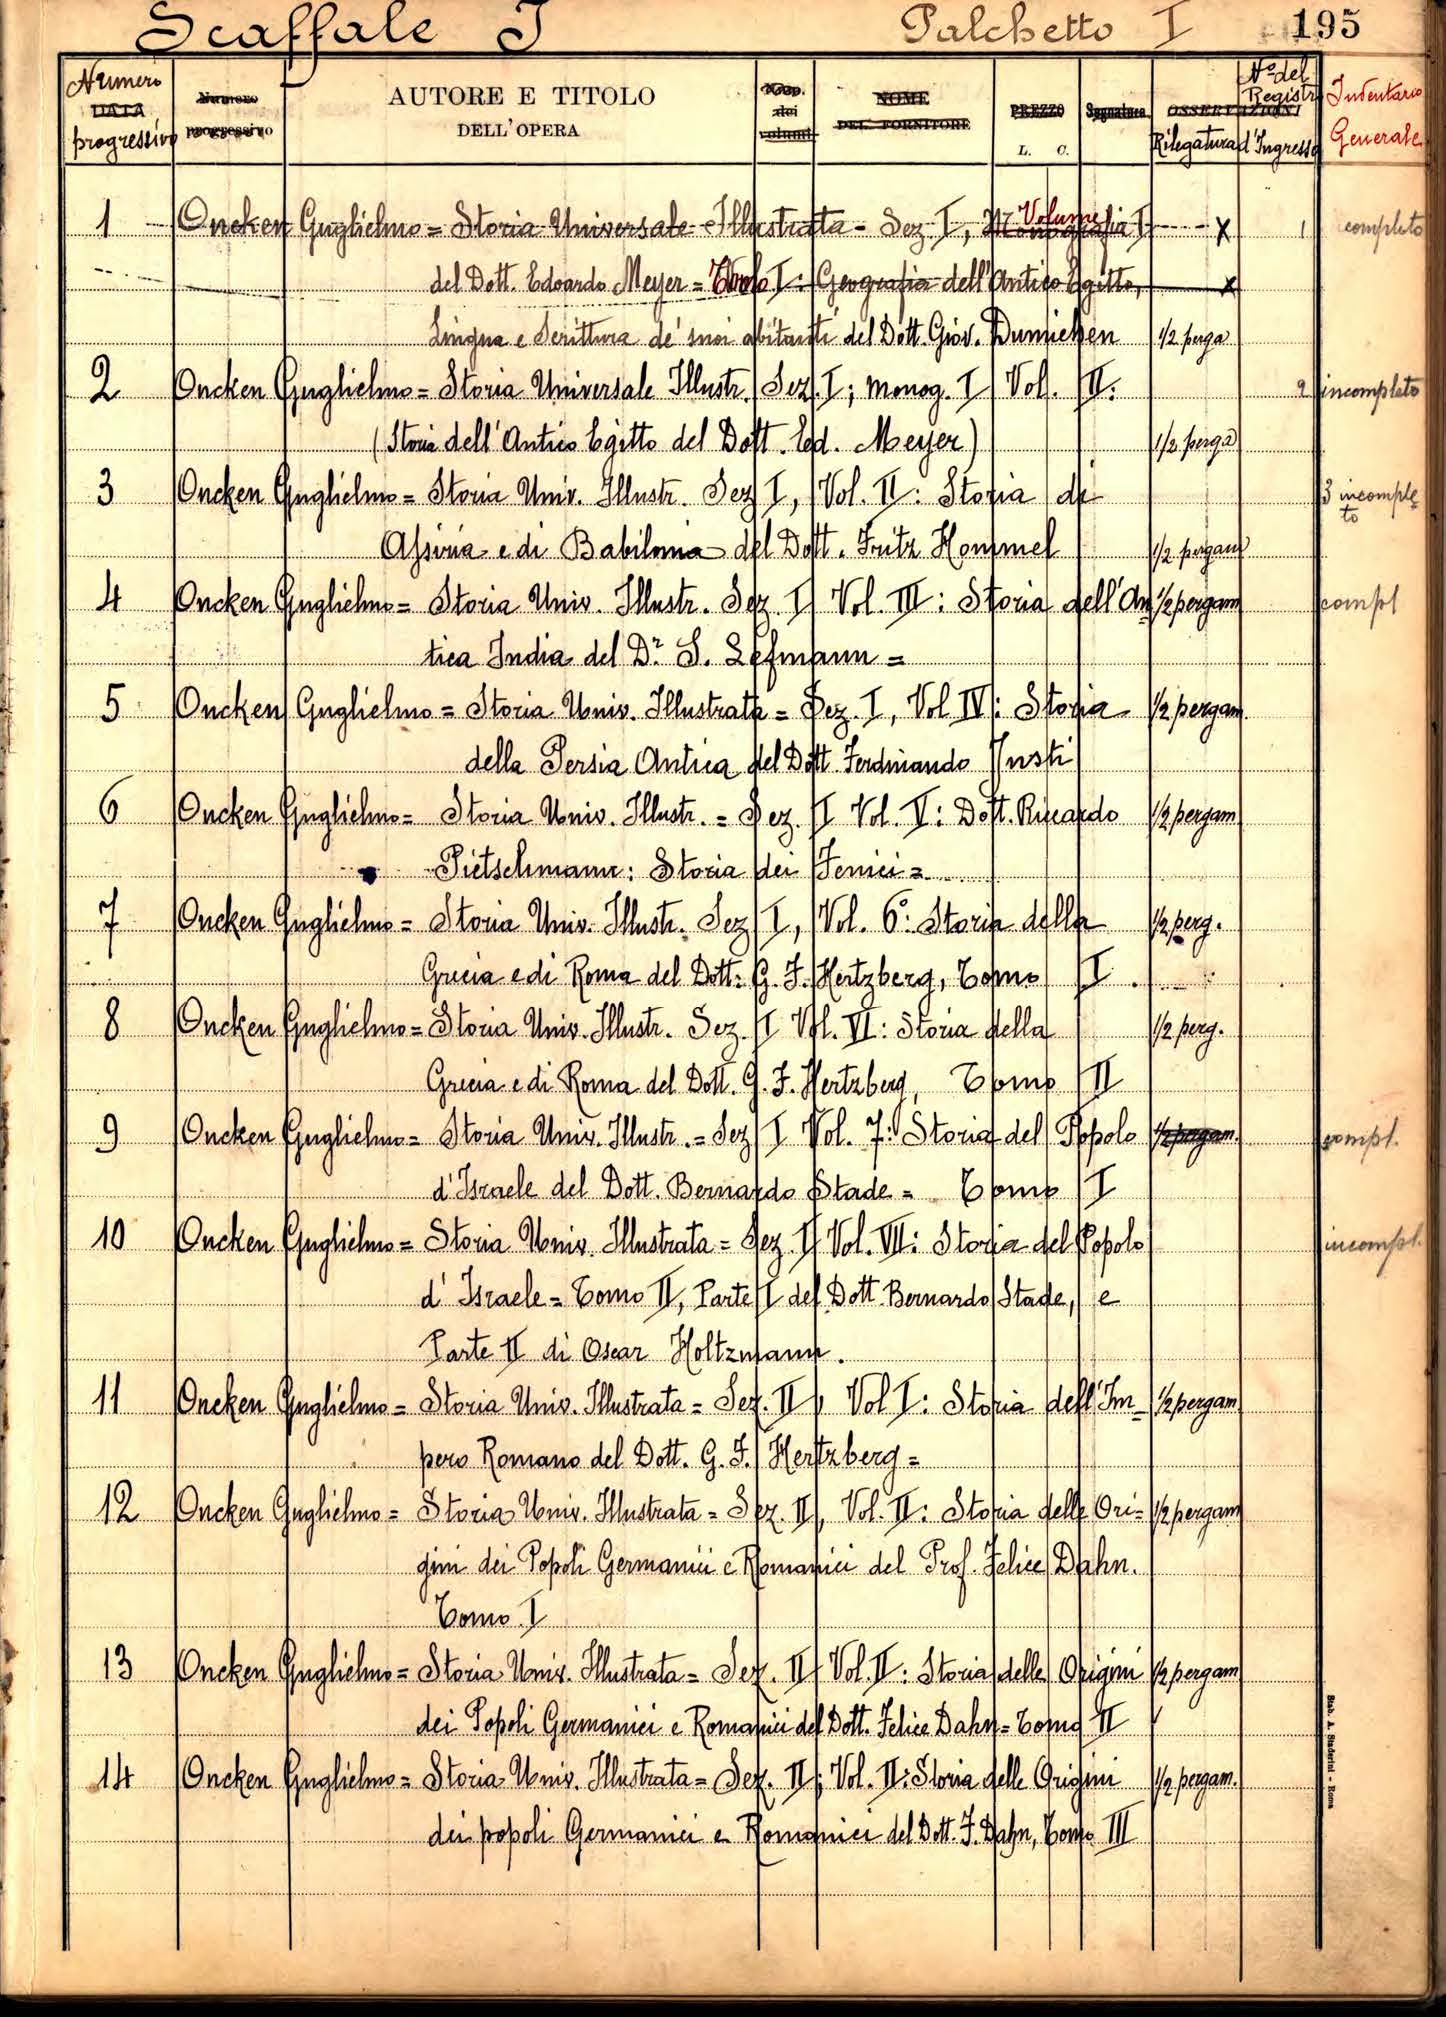 Scaffale I Palchetto I 195
Numero DATA progressivo
Numero progressivo
AUTORE E TITOLO
DELL'OPERA
Num. dei volumi
NOME
DEL FORNITORE
PREZZO
L. C.
Segnatura
OSSERVAZIONI
Rilegatura
No del Registro d'Ingresso
Inventario Generale
1 Oncken Guglielmo = Storia Universale Illustrata - Sez. I, Monografia Volume I x 1 completo
del Dott. Edoardo Meyer = Tomo I: Geografia dell'Antico Egitto, x
Lingua e Scrittura de' suoi abitanti del Dott. Giov. Dumichen 1/2 perga
2 Oncken Guglielmo = Storia Universale Illustr. Sez. I; monog. I Vol. II: 2 incompleto
(Storia dell'Antico Egitto del Dott. Ed. Meyer) 1/2 perga
3 Oncken Guglielmo = Storia Univ. Illustr. Sez I, Vol. II: Storia di 3 incomple
to
Assiria e di Babilonia del Dott. Fritz Hommel 1/2 pergam
4 Oncken Guglielmo = Storia Univ. Illustr. Sez. I Vol. III: Storia dell'An 1/2 pergam compl
tica India del Dr. S. Lefmann =
5 Oncken Guglielmo = Storia Univ. Illustrata = Sez. I, Vol IV: Storia 1/2 pergam.
della Persia Antica del Dott. Ferdinando Justi
6 Oncken Guglielmo = Storia Univ. Illustr. = Sez. I Vol. V: Dott. Riccardo 1/2 pergam
Pietschmann: Storia dei Fenici =
7 Oncken Guglielmo = Storia Univ. Illustr. Sez I, Vol. 6°: Storia della 1/2 perg.
Grecia e di Roma del Dott: G. F. Hertzberg, Tomo I.
8 Oncken Guglielmo = Storia Univ. Illustr. Sez. I Vol. VI: Storia della 1/2 perg.
Grecia e di Roma del Dott. G. F. Hertzberg, Tomo II
9 Oncken Guglielmo = Storia Univ. Illustr. = Sez I Vol. 7: Storia del Popolo 1/2 pergam. compl.
d'Israele del Dott. Bernardo Stade = Tomo I
10 Oncken Guglielmo = Storia Univ. Illustrata = Sez. I Vol. VII: Storia del Popolo incompl.
d'Israele = Tomo II, Parte I del Dott. Bernardo Stade, e
Parte II di Oscar Holtzmann.
11 Oncken Guglielmo = Storia Univ. Illustrata = Sez. II, Vol I: Storia dell'Im= 1/2 pergam
pero Romano del Dott. G. F. Hertzberg =
12 Oncken Guglielmo = Storia Univ. Illustrata = Sez. II, Vol. II: Storia delle Ori= 1/2 pergam
gini dei Popoli Germanici e Romanici del Prof. Felice Dahn.
Tomo I
13 Oncken Guglielmo = Storia Univ. Illustrata = Sez. II Vol. II: Storia delle Origini 1/2 pergam
dei Popoli Germanici e Romanici del Dott. Felice Dahn = Tomo II
14 Oncken Guglielmo = Storia Univ. Illustrata = Sez. II; Vol. II: Storia delle Origini 1/2 pergam.
dei popoli Germanici e Romanici del Dott. F. Dahn, Tomo III
Stab. A. Staderini - Roma